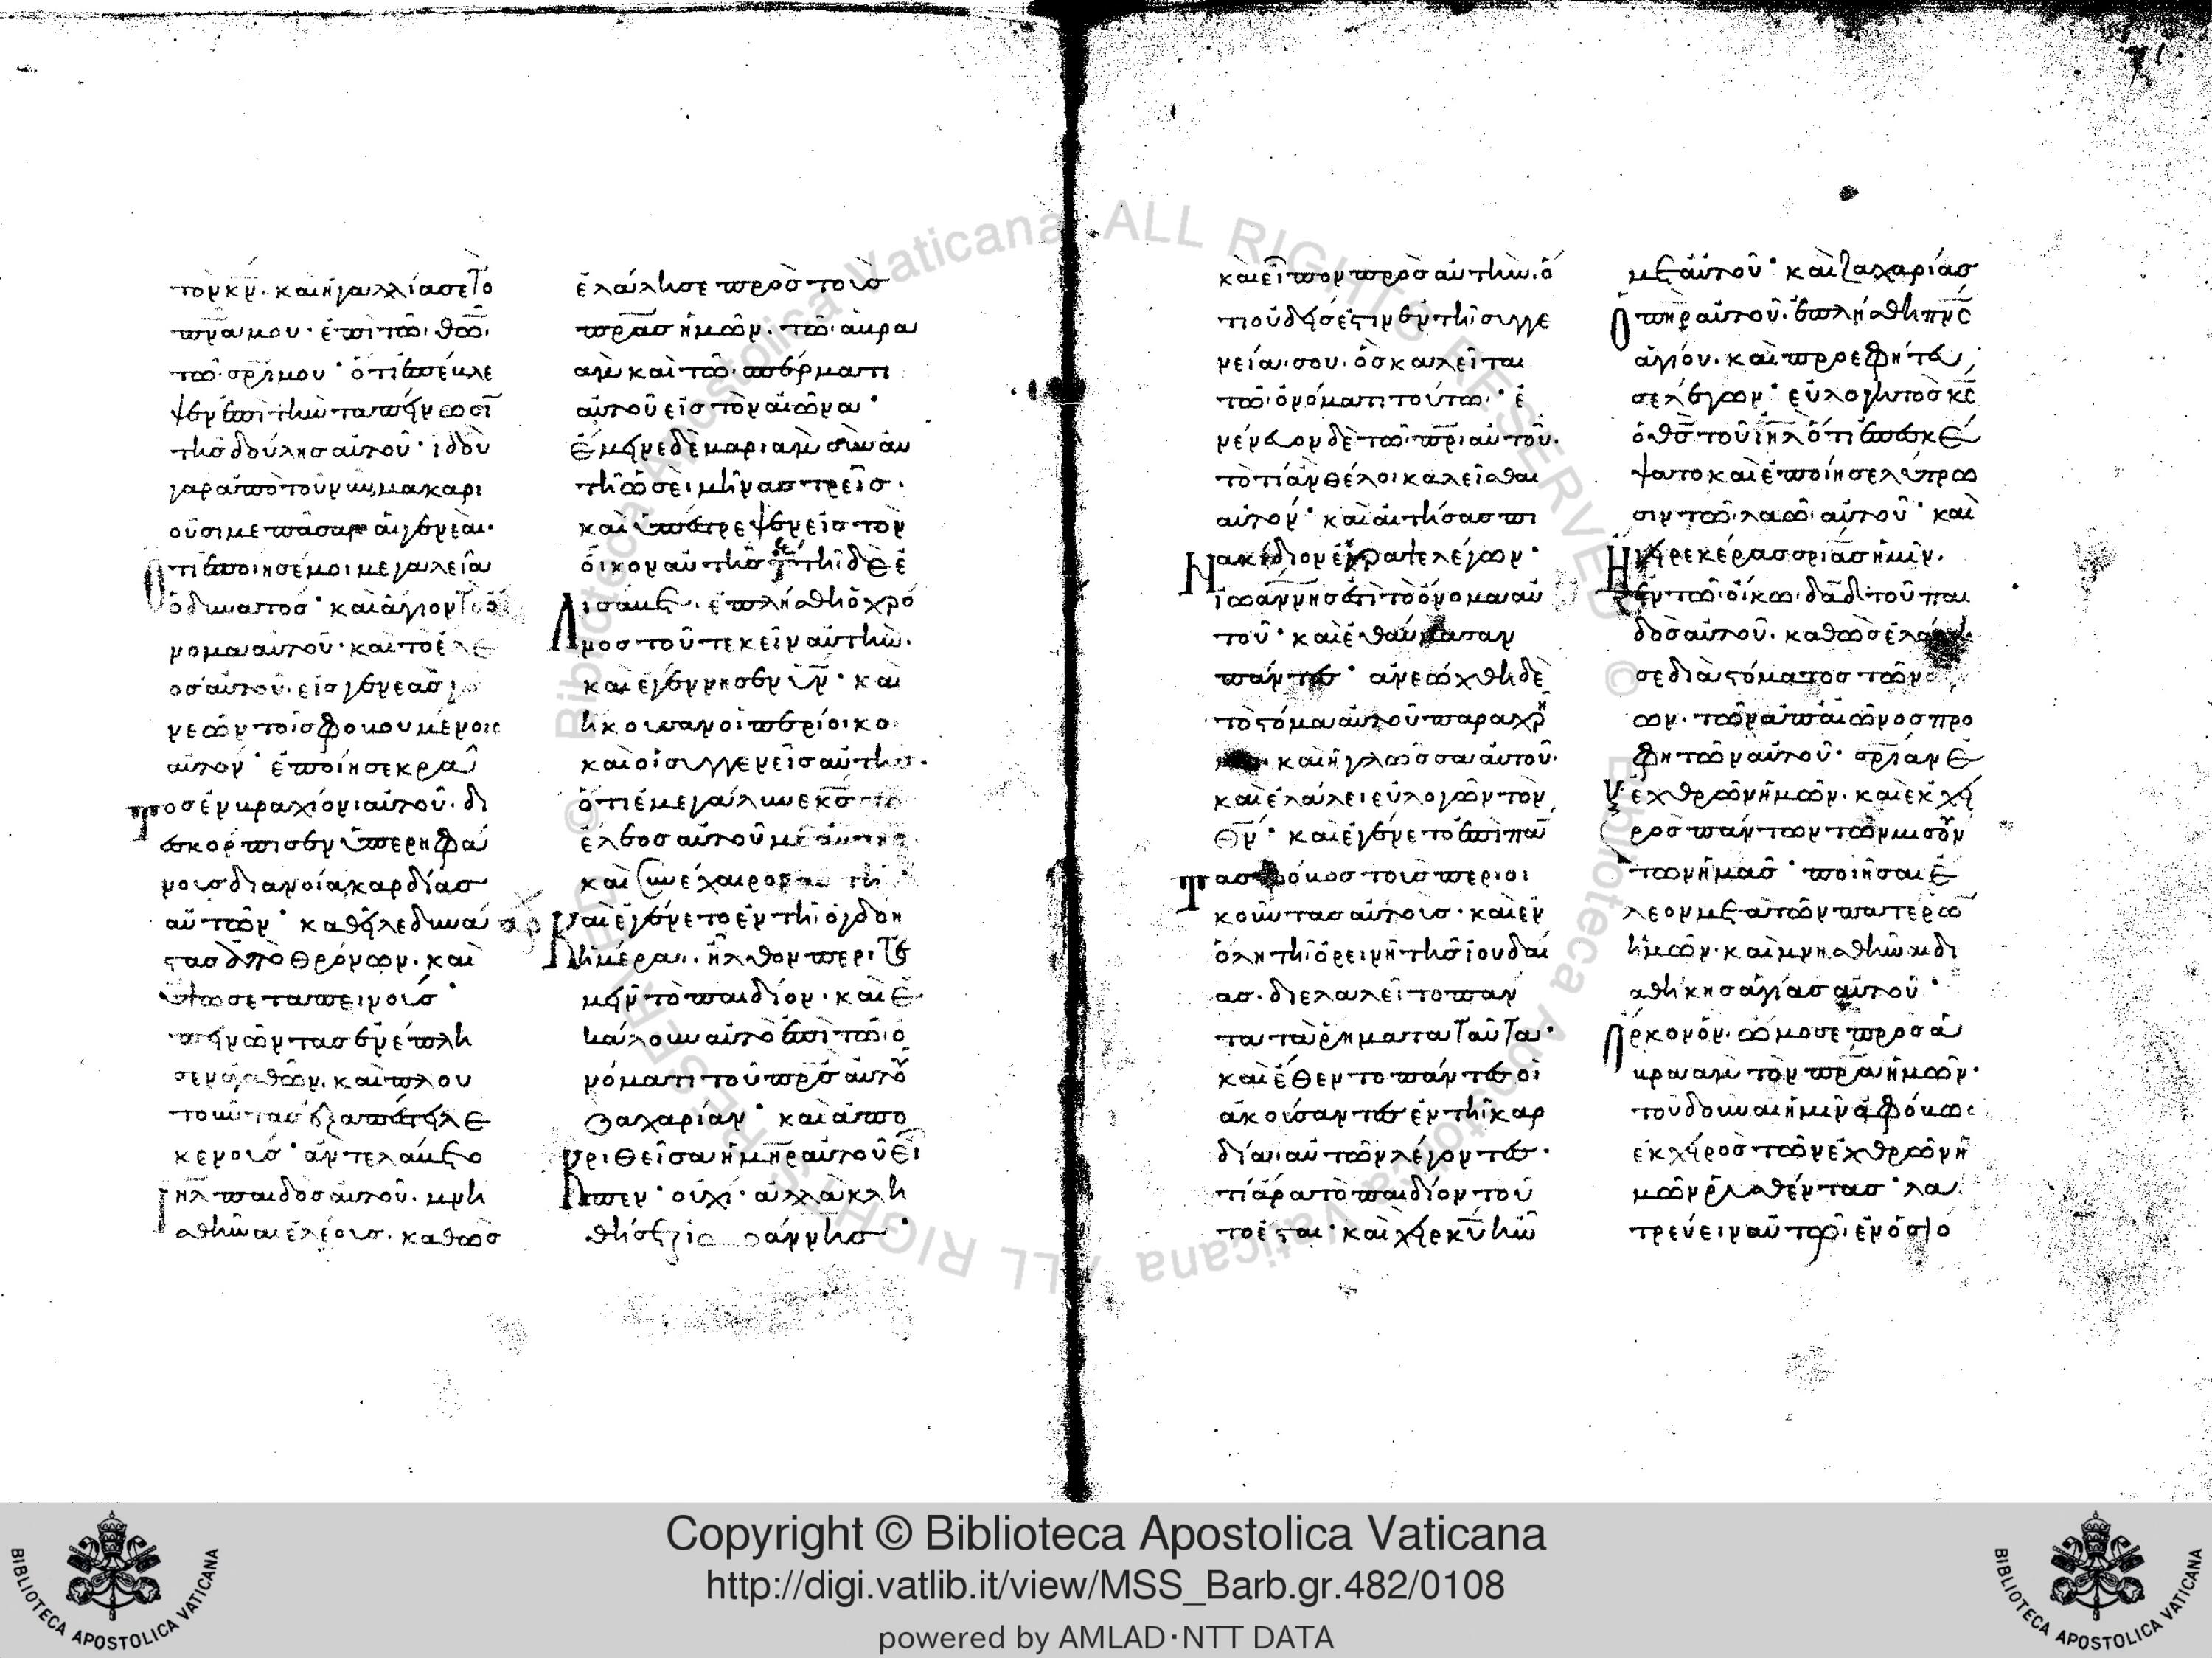 τὸν κν̄· καὶ ἠγαλλίασε τὸ
πνᾱ μου· ἐπὶ τῶ θῶ̄
τῶ σρ̄ι μου· ὅτι ἐπέβλε
ψεν ἐπὶ τὴν ταπείνωσῑ
τῆσ δούλησ αὐτοῦ· ἰδοὺ
γὰρ ἀπὸ τοῦ νῦν μακαρι
οῦσι με πᾶσαι αἱ γενεαί·
ὅτι ἐποίησέ μοι μεγαλεῖα
ὁ δυνατόσ· καὶ ἅγιον τὸ ὄ
νομα αὐτοῦ· καὶ τὸ ἔλε
οσ αὐτοῦ εἰσ γενεὰσ γε
νεῶν τοῖσ φοβουμένοισ
αὐτόν· ἐποίησε κρά
τοσ ἐν βραχίονι αὐτοῦ· δι
εσκόρπισεν ὑπερηφά
νουσ διανοία καρδίασ
αὐτῶν· καθεῖλε δυνά
στασ ἀπὸ θρόνων· καὶ
ὕψωσε ταπεινούσ·
πεινῶντασ ἐνέπλη
σεν ἀγαθῶν· καὶ πλου
τοῦντασ ἐξαπέστειλε
κενούσ· ἀντελάβετο
ιη̄λ παιδὸσ αὐτοῦ· μνη
σθῆναι ἐλέουσ· καθὼσ
ἐλάλησε πρὸσ τοὺσ
πρ̄ασ ἡμῶν· τῶ ἀβρα
ὰμ καὶ τῶ σπέρματι
αὐτοῦ εἰσ τὸν αἰῶνα·
ἔμεινε δὲ μαριὰμ σὺν αὐ
τῆ ὡσεὶ μῆνασ τρεῖσ·
καὶ ὑπέστρεψεν εἰσ τὸν
οἶκον αὐτῆσ τῆ δὲ ἐ
λισάβετ ἐπλήσθη ὁ χρό
νοσ τοῦ τεκεῖν αὐτήν·
καὶ ἐγέννησεν ῡν· καὶ
ἤκουσαν οἱ περίοικοι
καὶ οἱ συγγενεῖσ αὐτῆσ·
ὅτι ἐμεγάλυνε κσ̄ τὸ
ἔλεοσ αὐτοῦ μετ' αὐτῆσ·
καὶ συνέχαιρον αὐτῆ
καὶ ἐγένετο ἐν τῆ ὀγδόη
ἡμέρα· ἦλθον περιτε
μεῖν τὸ παιδίον· καὶ ἐ
κάλουν αὐτὸ ἐπὶ τῶ ὀ
νόματι τοῦ πρ̄σ αὐτοῦ
ζαχαρίαν· καὶ ἀπο
κριθεῖσα ἡ μη̄ρ αὐτοῦ εἶ
πεν· οὐχί· ἀλλὰ κλη
θήσεται ἰωάννησ·
καὶ εἶπον πρὸσ αὐτήν· ὅ
τι οὐδείσ ἐστιν ἐν τῆ συγγε
νεία σου· ὃσ καλεῖται
τῶ ὀνόματι τούτω· ἐ
νένευον δὲ τῶ πρ̄ι αὐτοῦ·
τὸ τί ἂν θέλοι καλεῖσθαι
αὐτόν· καὶ αἰτήσασ πι
νακίδιον ἔγραψε λέγων·
ἰωάννησ ἐστὶ τὸ ὄνομα αὐ
τοῦ· καὶ ἐθαύμασαν
πάντεσ· ἀνεώχθη δὲ
τὸ στόμα αὐτοῦ παραχρῆ
μα καὶ ἡ γλῶσσα αὐτοῦ·
καὶ ἐλάλει εὐλογῶν τὸν
θν̄· καὶ ἐγένετο ἐπὶ πάν
τασ φόβοσ τοὺσ περιοι
κοῦντασ αὐτούσ· καὶ ἐν
ὅλη τῆ ὀρεινῆ τῆσ ἰουδαί
ασ· διελαλεῖτο πάν
τα τὰ ῥήματα ταῦτα·
καὶ ἔθεντο πάντεσ οἱ
ἀκούσαντεσ ἐν τῆ καρ
δία αὐτῶν λέγοντεσ·
τί ἄρα τὸ παιδίον τοῦ
το ἔσται· καὶ χεὶρ κῡ ἦν
μετ' αὐτοῦ· καὶ ζαχαρίασ
ὁ πη̄ρ αὐτοῦ· ἐπλήσθη πνς̄
ἁγίου· καὶ προεφήτευ
σε λέγων· εὐλογητὸσ κσ̄
ὁ θσ̄ τοῦ ιη̄λ ὅτι ἐπεσκέ
ψατο καὶ ἐποίησε λύτρω
σιν τῶ λαῶ αὐτοῦ· καὶ
ἤγειρε κέρασ σρ̄ιασ ἡμῖν·
ἐν τῶ οἴκω δᾱδ τοῦ παι
δὸσ αὐτοῦ· καθὼσ ἐλάλη
σε διὰ στόματοσ τῶν
ων· τῶν ἀπ' αἰῶνοσ προ
φητῶν αὐτοῦ· σρ̄ιαν ἐ
ξ ἐχθρῶν ἡμῶν· καὶ ἐκ χει
ρὸσ πάντων τῶν μισούν
των ἡμᾶσ· ποιῆσαι ἔ
λεον μετὰ τῶν πατέρων
ἡμῶν· καὶ μνησθῆναι δι
αθήκησ ἁγίασ αὐτοῦ·
ὅρκον ὃν ὤμοσε πρὸσ ἀ
βραὰμ τὸν πρ̄α ἡμῶν·
τοῦ δοῦναι ἡμῖν ἀφόβωσ
ἐκ χειρὸσ τῶν ἐχθρῶν ἡ
μῶν ῥυσθέντασ· λα
τρεύειν αὐτῶ ἐν ὁσιό
Copyright © Biblioteca Apostolica Vaticana
http://digi.vatlib.it/view/MSS_Barb.gr.482/0108
powered by AMLAD·NTT DATA